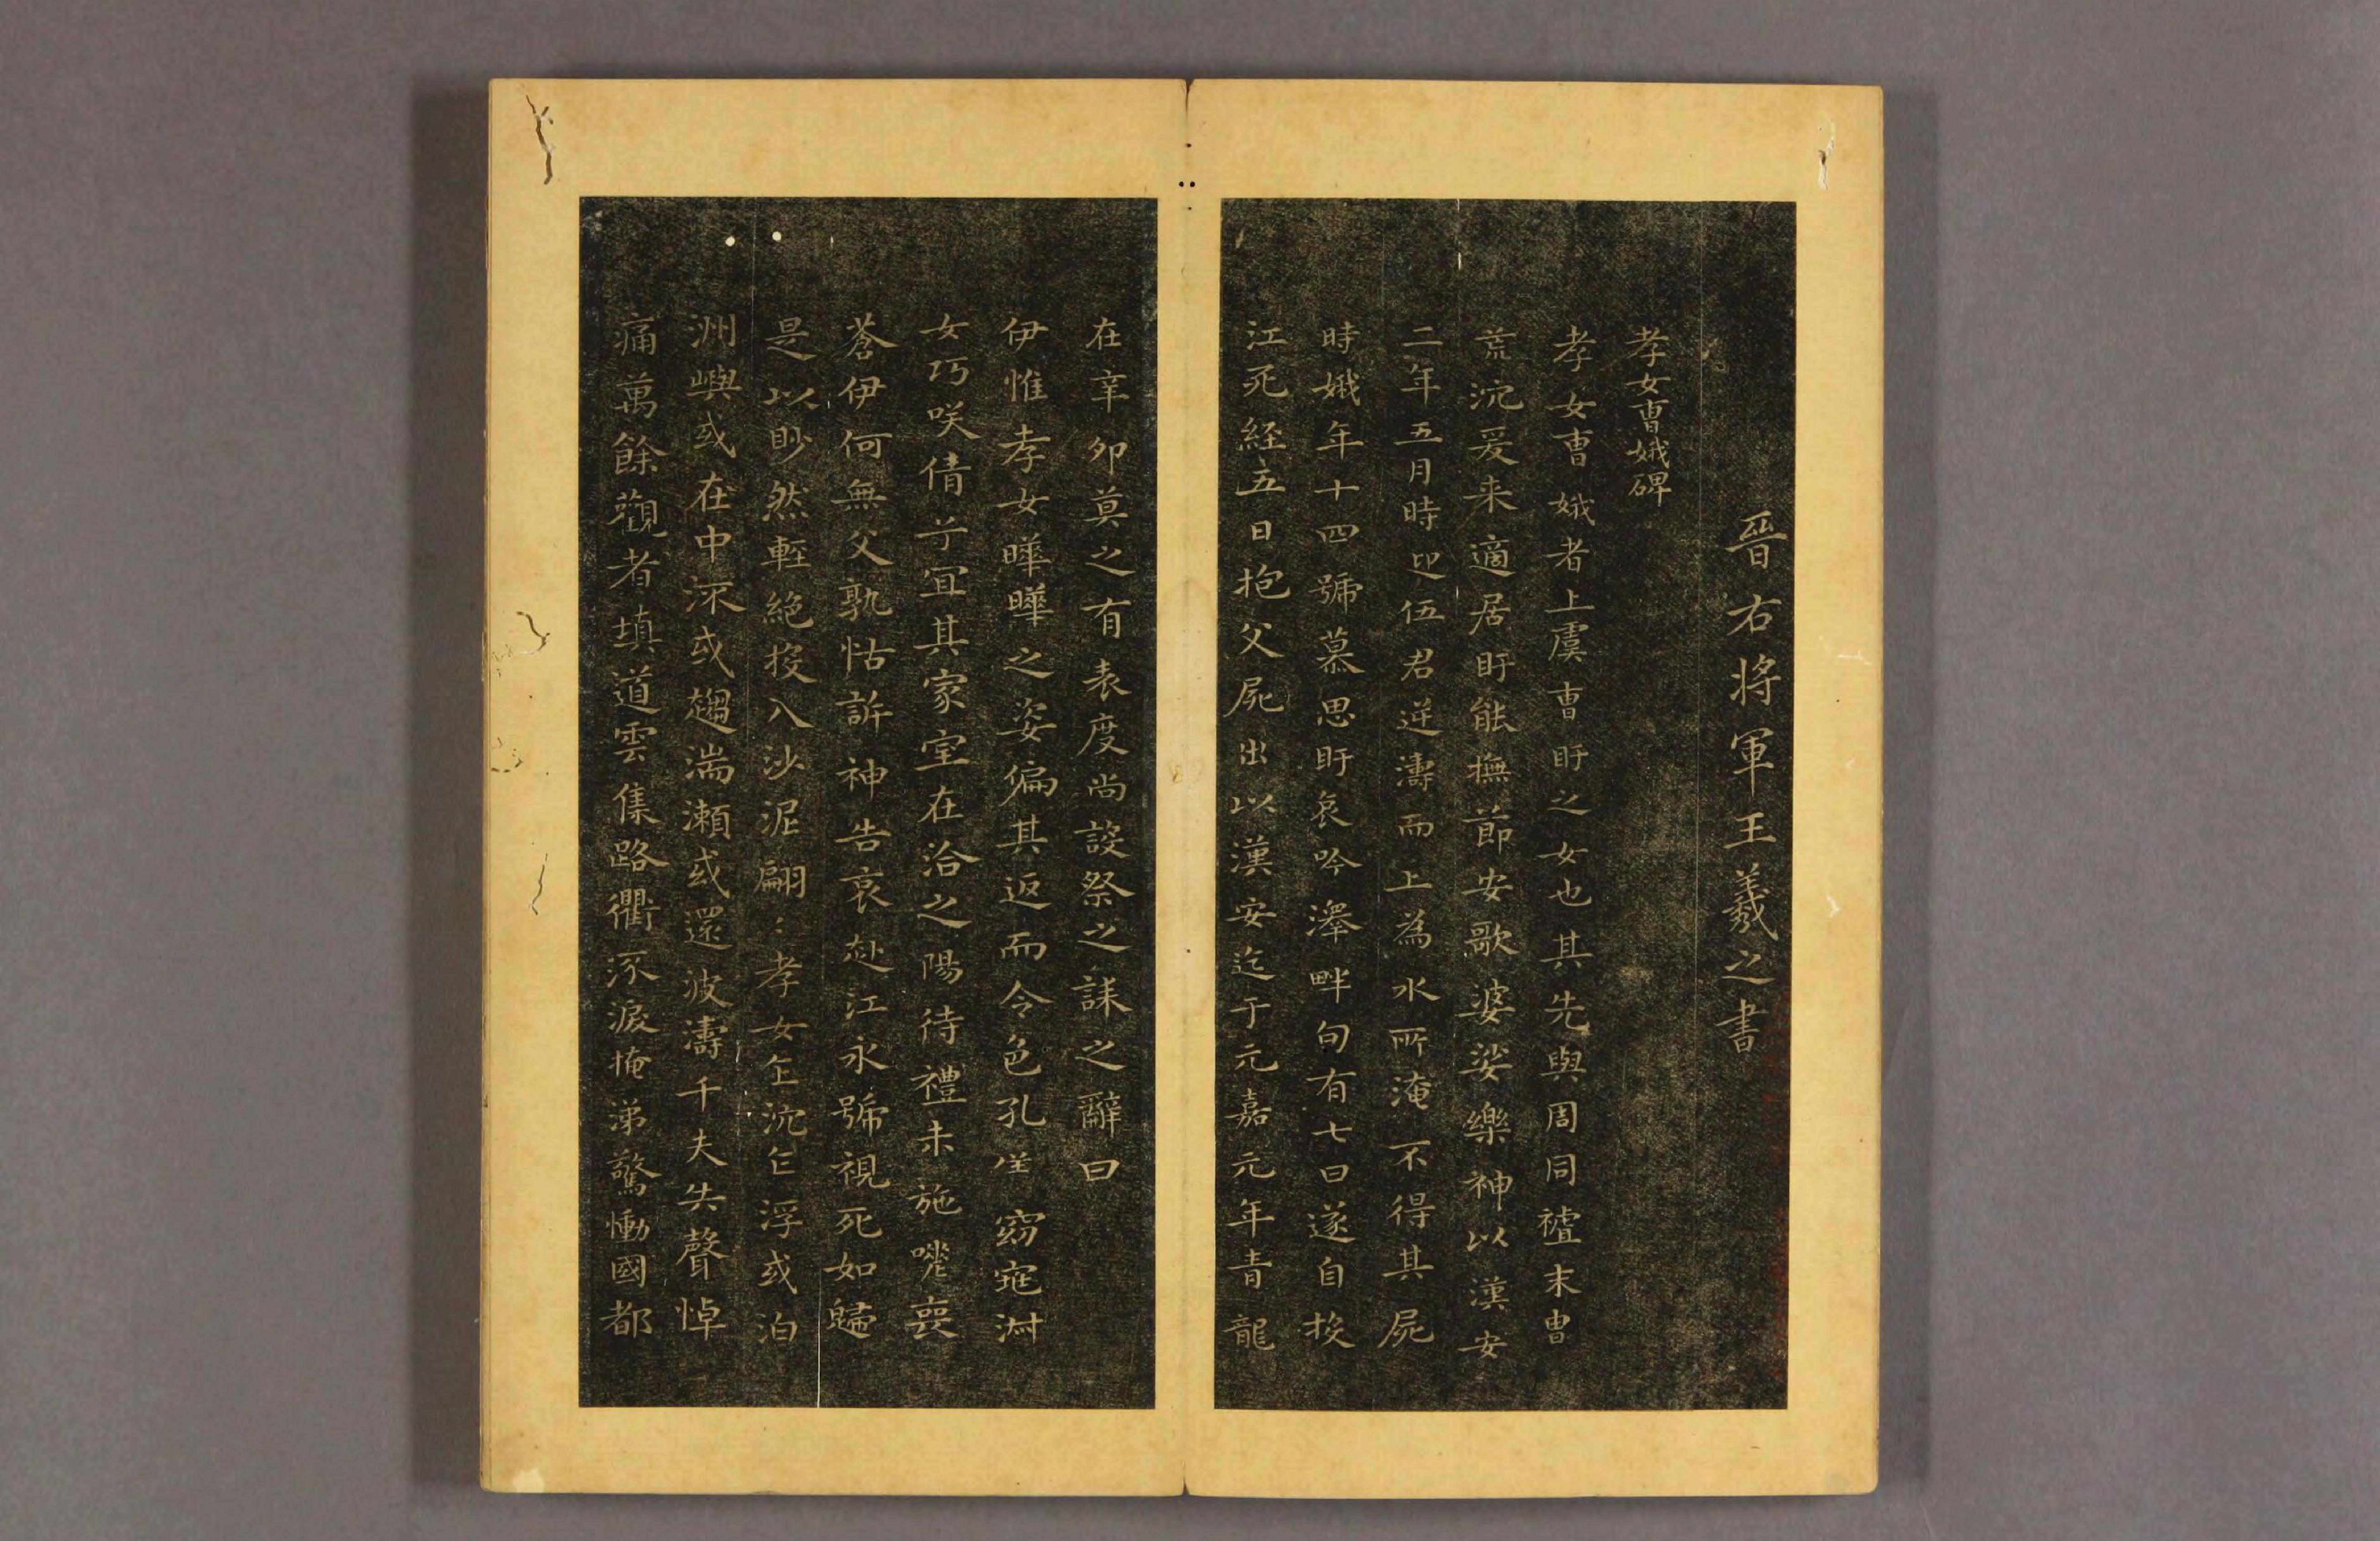 晉右將軍王羲之書
孝女曹娥碑
孝女曹娥者上虞曹盱之女也其先與周同襠末曹
荒沉爰来適居盱能撫節安歌婆娑樂神以漢安
二年五月時迎伍君逆濤而上為水所淹不得其屍
時娥年十四號慕思盱哀吟澤畔旬有七日遂自投
江死經五日抱父屍出以漢安迄于元嘉元年青龍
在辛卯莫之有表度尚設祭之誄之辭曰
伊惟孝女曄曄之姿偏其返而令色孔儀窈窕淑
女巧咲倩兮宜其家室在洽之陽待禮未施嗟喪
蒼伊何無父孰怙訴神告哀赴江永號視死如歸
是以眇然輕絶投入沙泥翩〻孝女乍沉乍浮或泊
洲嶼或在中流或趨湍瀬或還波濤千夫失聲悼
痛萬餘觀者填道雲集路衢流淚掩涕驚慟國都